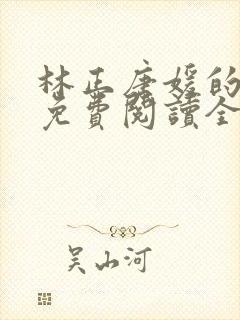 林正唐媛的
免費閱讀全
吴山河